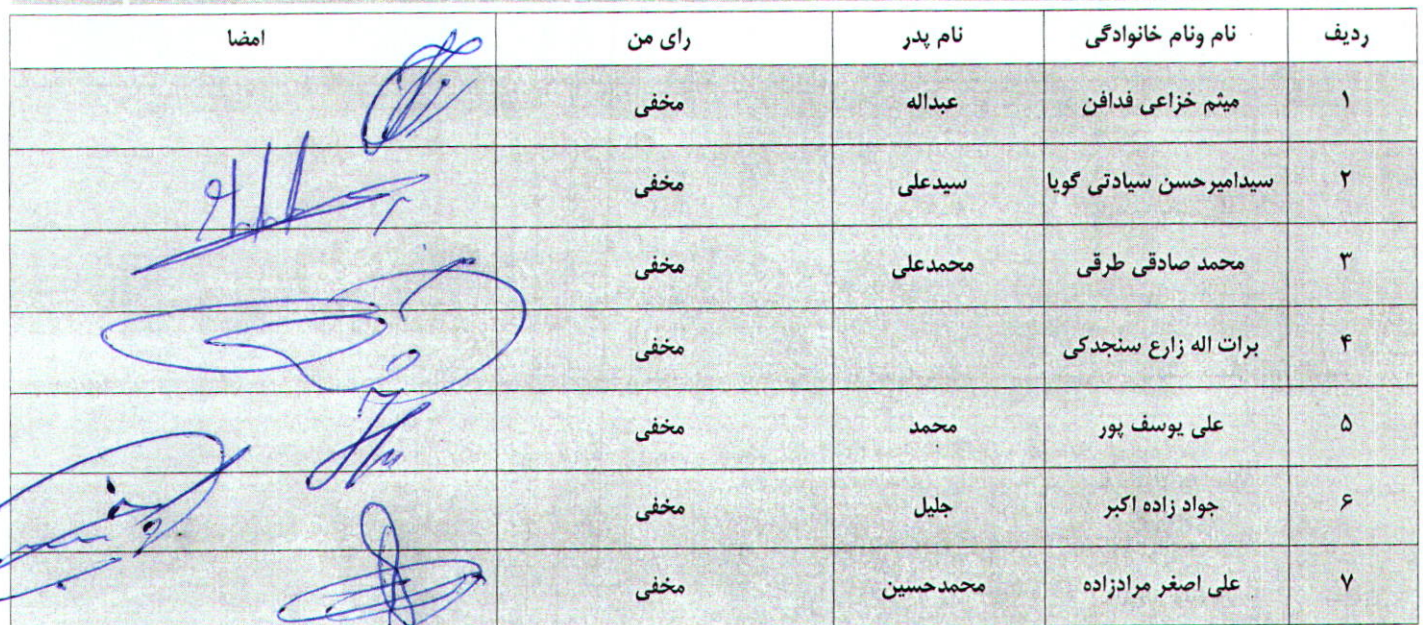 ردیف نام ونام خانوادگی نام پدر رای من امضا
۱ میثم خزاعی فدافن عبداله مخفی
۲ سیدامیرحسن سیادتی گویا سیدعلی مخفی
۳ محمد صادقی طرقی محمدعلی مخفی
۴ برات اله زارع سنجدکی مخفی
۵ علی یوسف پور محمد مخفی
۶ جواد زاده اکبر جلیل مخفی
۷ علی اصغر مرادزاده محمدحسین مخفی